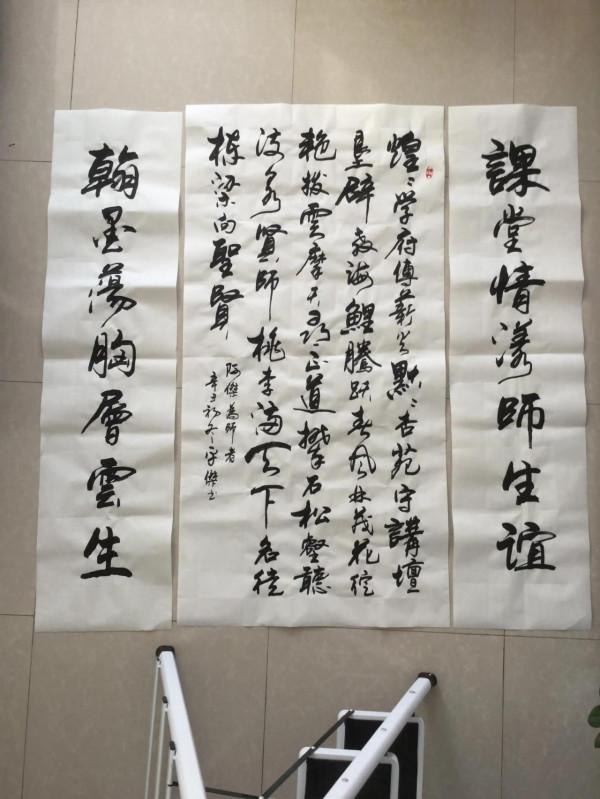 課堂情漾師生誼
煌〻學府傳薪火默〻杏苑守講壇
墾辟教海鯉騰躍春風林茂花綻
艷拔雲摩天尋正道攀石松壑聽
賢師桃李滿天下名徒
棟梁向聖賢
阿傑為師者
辛丑初冬傑書
翰墨蕩胸層雲生